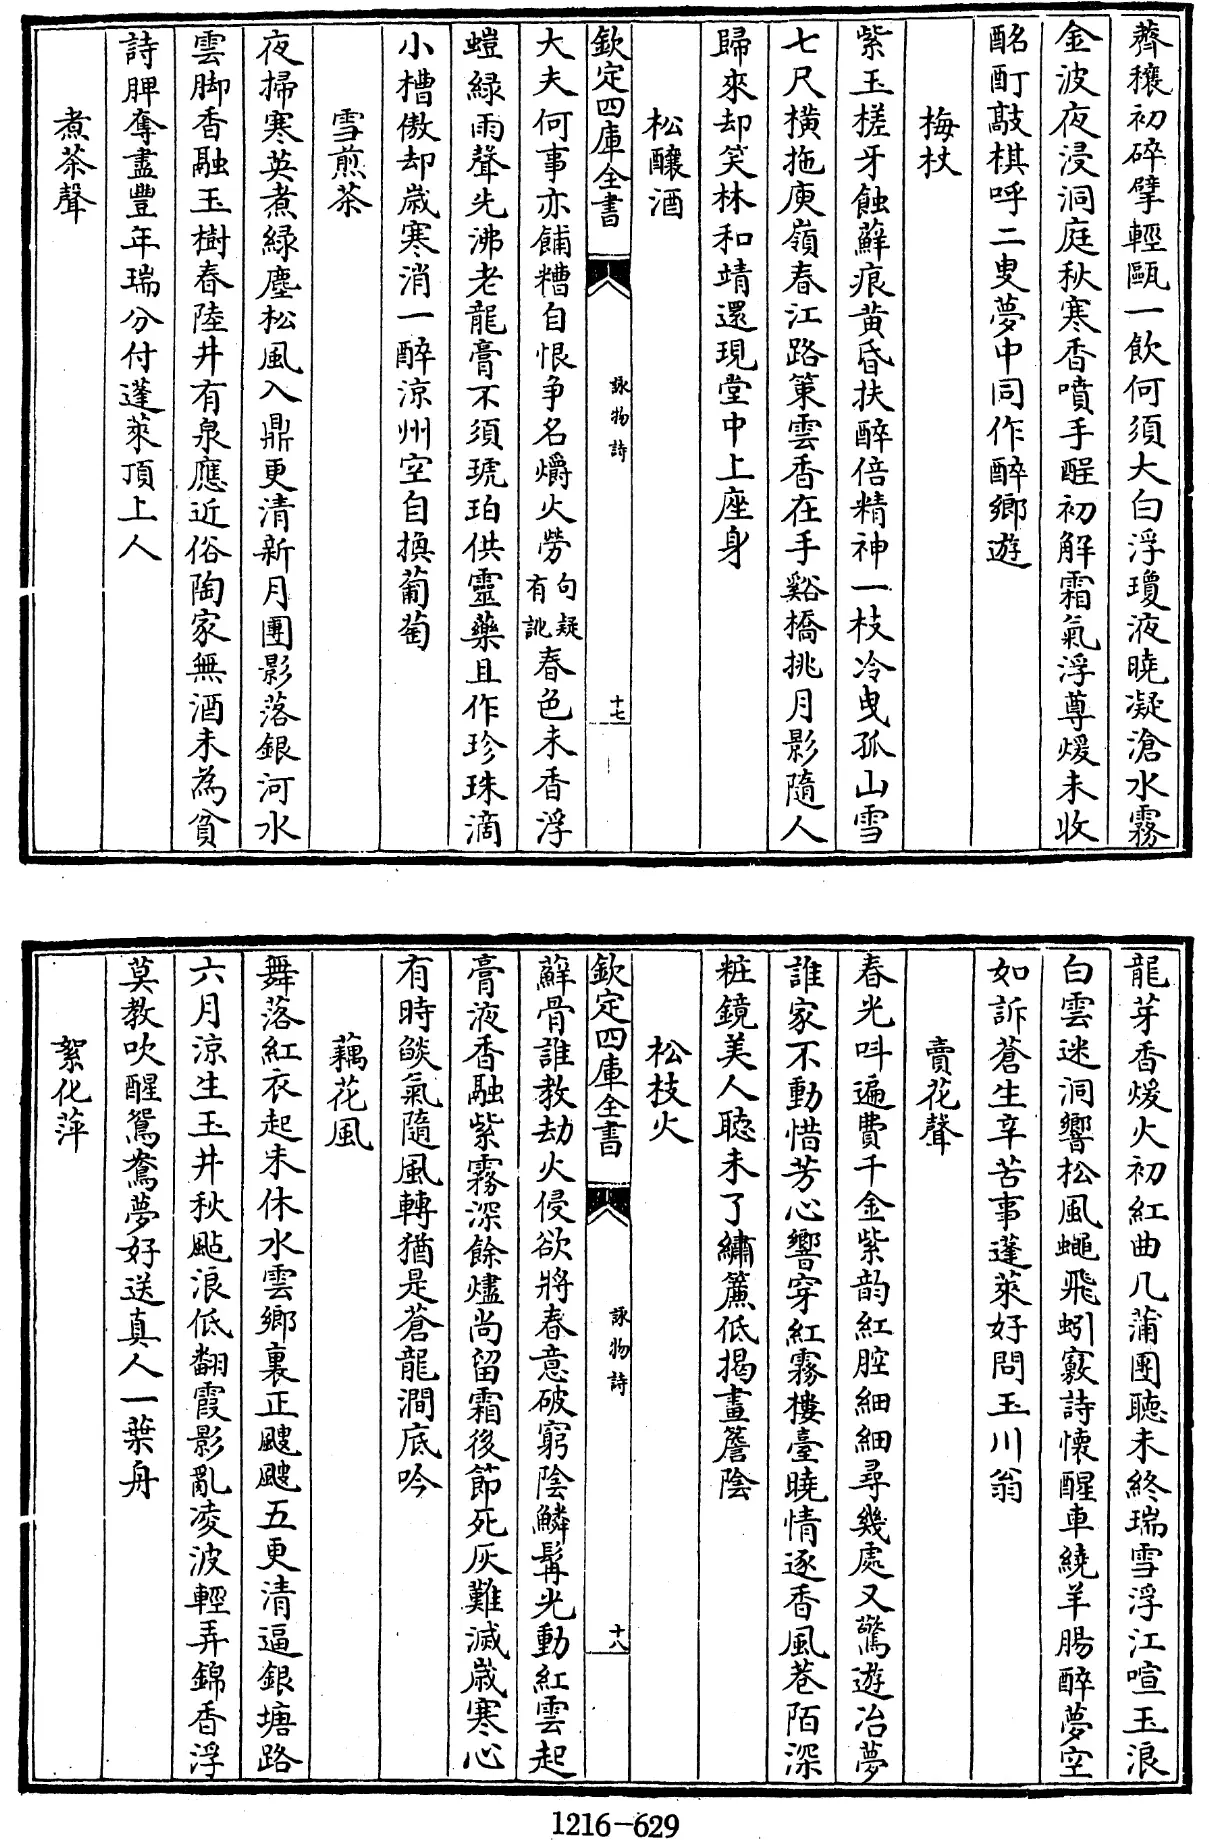 虀穰初碎擘輕甌一飲何須大白浮瓊液曉凝滄水霧
金波夜浸洞庭秋寒香噴手酲初解霜氣浮尊煖未收
酩酊敲棋呼二叟夢中同作醉鄉遊
梅杖
紫玉槎牙蝕蘚痕黄昏扶醉倍精神一枝冷曳孤山雪
七尺横拖庾嶺春江路策雲香在手谿橋挑月影隨人
歸來却笑林和靖還現堂中上座身
松釀酒
欽定四庫全書
詠物詩
十七
大夫何事亦餔糟自恨争名爝火勞句疑有訛春色未香浮
螘緑雨聲先沸老龍膏不須琥珀供靈藥且作珍珠滴
小槽傲却歲寒消一醉涼州空自換葡萄
雪煎茶
夜掃寒英煮緑塵松風入鼎更清新月團影落銀河水
雲脚香融玉樹春陸井有泉應近俗陶家無酒未為貧
詩脾奪盡豐年瑞分付蓬萊頂上人
煮茶聲
龍芽香煖火初紅曲几蒲團聽未終瑞雪浮江喧玉浪
白雲迷洞響松風蠅飛蚓竅詩懷醒車繞羊腸醉夢空
如訴蒼生辛苦事蓬萊好問玉川翁
賣花聲
春光呌遍費千金紫韵紅腔細細尋幾處又驚遊冶夢
誰家不動惜芳心響穿紅霧樓臺曉情逐香風巷陌深
粧鏡美人聽未了繡簾低揭畫簷陰
松枝火
欽定四庫全書
詠物詩
十八
蘚骨誰教劫火侵欲將春意破窮陰鱗髯光動紅雲起
膏液香融紫霧深餘燼尚留霜後節死灰難滅歲寒心
有時燄氣隨風轉猶是蒼龍澗底吟
藕花風
舞落紅衣起未休水雲鄉裏正颼颼五更清逼銀塘路
六月涼生玉井秋颭浪低翻霞影亂凌波輕弄錦香浮
莫教吹醒鴛鴦夢好送真人一葉舟
絮化萍
1216-629